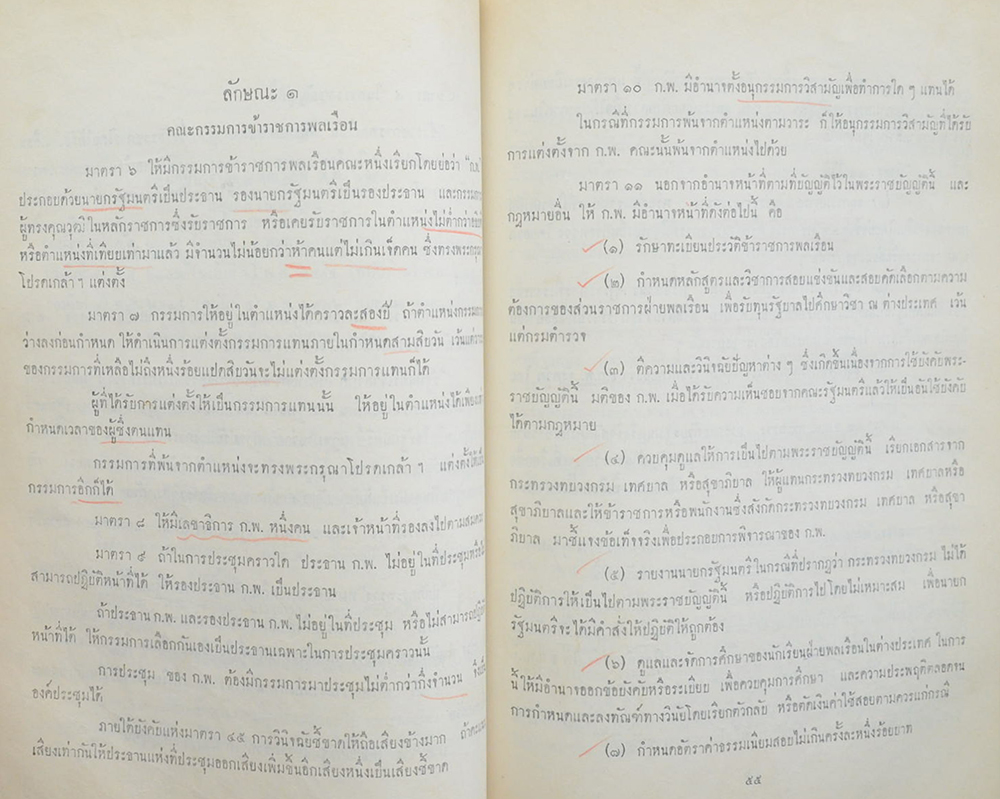 ลักษณะ ๑
คณะกรรมการข้าราชการพลเรือน
มาตรา ๖ ให้มีกรรมการข้าราชการพลเรือนคณะหนึ่งเรียกโดยย่อว่า "ก.พ."
ประกอบด้วยนายกรัฐมนตรีเป็นประธาน รองนายกรัฐมนตรีเป็นรองประธาน และกรรมการ
ผู้ทรงคุณวุฒิในหลักราชการซึ่งรับราชการ หรือเคยรับราชการในตำแหน่งไม่ต่ำกว่าอธิบดี
หรือตำแหน่งที่เทียบเท่ามาแล้ว มีจำนวนไม่น้อยกว่าห้าคนแต่ไม่เกินเจ็ดคน ซึ่งทรงพระกรุณา
โปรดเกล้าฯ แต่งตั้ง
มาตรา ๗ กรรมการให้อยู่ในตำแหน่งได้คราวละสองปี ถ้าตำแหน่งกรรมการ
ว่างลงก่อนกำหนด ให้ดำเนินการแต่งตั้งกรรมการแทนภายในกำหนดสามสิบวัน เว้นแต่วาระ
ของกรรมการที่เหลือไม่ถึงหนึ่งร้อยแปดสิบวันจะไม่แต่งตั้งกรรมการแทนก็ได้
ผู้ที่ได้รับการแต่งตั้งให้เป็นกรรมการแทนนั้น ให้อยู่ในตำแหน่งได้เพียง
กำหนดเวลาของผู้ซึ่งตนแทน
กรรมการที่พ้นจากตำแหน่งจะทรงพระกรุณาโปรดเกล้าฯ แต่งตั้งให้เป็น
กรรมการอีกก็ได้
มาตรา ๘ ให้มีเลขาธิการ ก.พ. หนึ่งคน และเจ้าหน้าที่รองลงไปตามสมควร
มาตรา ๙ ถ้าในการประชุมคราวใด ประธาน ก.พ. ไม่อยู่ในที่ประชุมหรือไม่
สามารถปฏิบัติหน้าที่ได้ ให้รองประธาน ก.พ. เป็นประธาน
ถ้าประธาน ก.พ. และรองประธาน ก.พ. ไม่อยู่ในที่ประชุม หรือไม่สามารถปฏิบัติ
หน้าที่ได้ ให้กรรมการเลือกกันเองเป็นประธานเฉพาะในการประชุมคราวนั้น
การประชุม ของ ก.พ. ต้องมีกรรมการมาประชุมไม่ต่ำกว่ากึ่งจำนวน จึงเป็น
องค์ประชุมได้
ภายใต้บังคับแห่งมาตรา ๔๕ การวินิจฉัยชี้ขาดให้ถือเสียงข้างมาก ถ้าคะแนน
เสียงเท่ากันให้ประธานแห่งที่ประชุมออกเสียงเพิ่มขึ้นอีกเสียงหนึ่งเป็นเสียงชี้ขาด
มาตรา ๑๐ ก.พ. มีอำนาจตั้งอนุกรรมการวิสามัญเพื่อทำการใด ๆ แทนได้
ในกรณีที่กรรมการพ้นจากตำแหน่งตามวาระ ก็ให้อนุกรรมการวิสามัญที่ได้รับ
การแต่งตั้งจาก ก.พ. คณะนั้นพ้นจากตำแหน่งไปด้วย
มาตรา ๑๑ นอกจากอำนาจหน้าที่ตามที่บัญญัติไว้ในพระราชบัญญัตินี้ และ
กฎหมายอื่น ให้ ก.พ. มีอำนาจหน้าที่ดังต่อไปนี้ คือ
(๑) รักษาทะเบียนประวัติข้าราชการพลเรือน
(๒) กำหนดหลักสูตรและวิชาการสอบแข่งขันและสอบคัดเลือกตามความ
ต้องการของส่วนราชการฝ่ายพลเรือน เพื่อรับทุนรัฐบาลไปศึกษาวิชา ณ ต่างประเทศ เว้น
แต่กรมตำรวจ
(๓) ตีความและวินิจฉัยปัญหาต่าง ๆ ซึ่งเกิดขึ้นเนื่องจากการใช้บังคับพระ-
ราชบัญญัตินี้ มติของ ก.พ. เมื่อได้รับความเห็นชอบจากคณะรัฐมนตรีแล้วให้เป็นอันใช้บังคับ
ได้ตามกฎหมาย
(๔) ควบคุมดูแลให้การเป็นไปตามพระราชบัญญัตินี้ เรียกเอกสารจาก
กระทรวงทบวงกรม เทศบาล หรือสุขาภิบาล ให้ผู้แทนกระทรวงทบวงกรม เทศบาลหรือ
สุขาภิบาลและให้ข้าราชการหรือพนักงานซึ่งสังกัดกระทรวงทบวงกรม เทศบาล หรือสุขา
ภิบาล มาชี้แจงข้อเท็จจริงเพื่อประกอบการพิจารณาของ ก.พ.
(๕) รายงานนายกรัฐมนตรีในกรณีที่ปรากฏว่า กระทรวงทบวงกรม ไม่ได้
ปฏิบัติการให้เป็นไปตามพระราชบัญญัตินี้ หรือปฏิบัติการไปโดยไม่เหมาะสม เพื่อนายก
รัฐมนตรีจะได้มีคำสั่งให้ปฏิบัติให้ถูกต้อง
(๖) ดูแลและจัดการศึกษาของนักเรียนฝ่ายพลเรือนในต่างประเทศ ในการ
นี้ให้มีอำนาจออกข้อบังคับหรือระเบียบ เพื่อควบคุมการศึกษา และความประพฤติตลอดจน
การกำหนดและลงทัณฑ์ทางวินัยโดยเรียกตัวกลับ หรือตัดเงินค่าใช้สอยตามควรแก่กรณี
(๗) กำหนดอัตราค่าธรรมเนียมสอบไม่เกินครั้งละหนึ่งร้อยบาท
๕๕